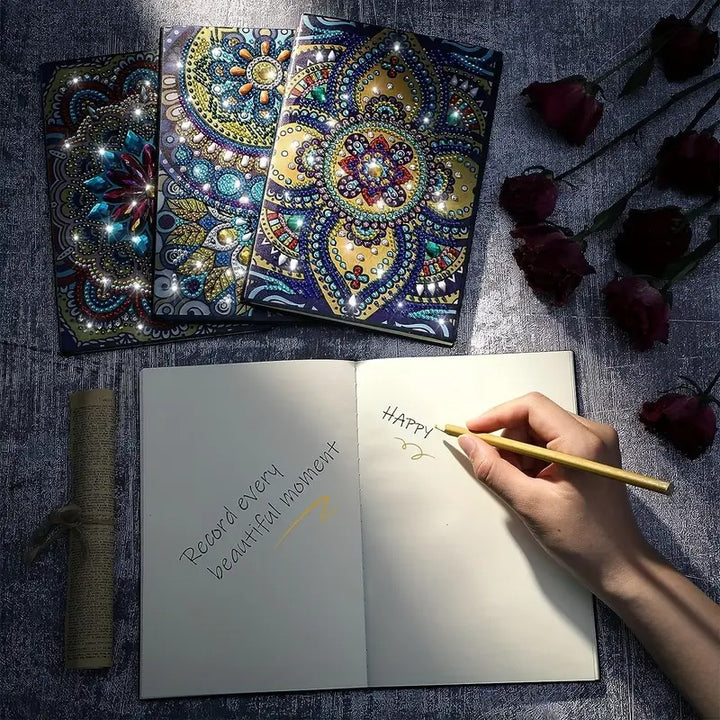 Record every
beautiful moment
HAPPY